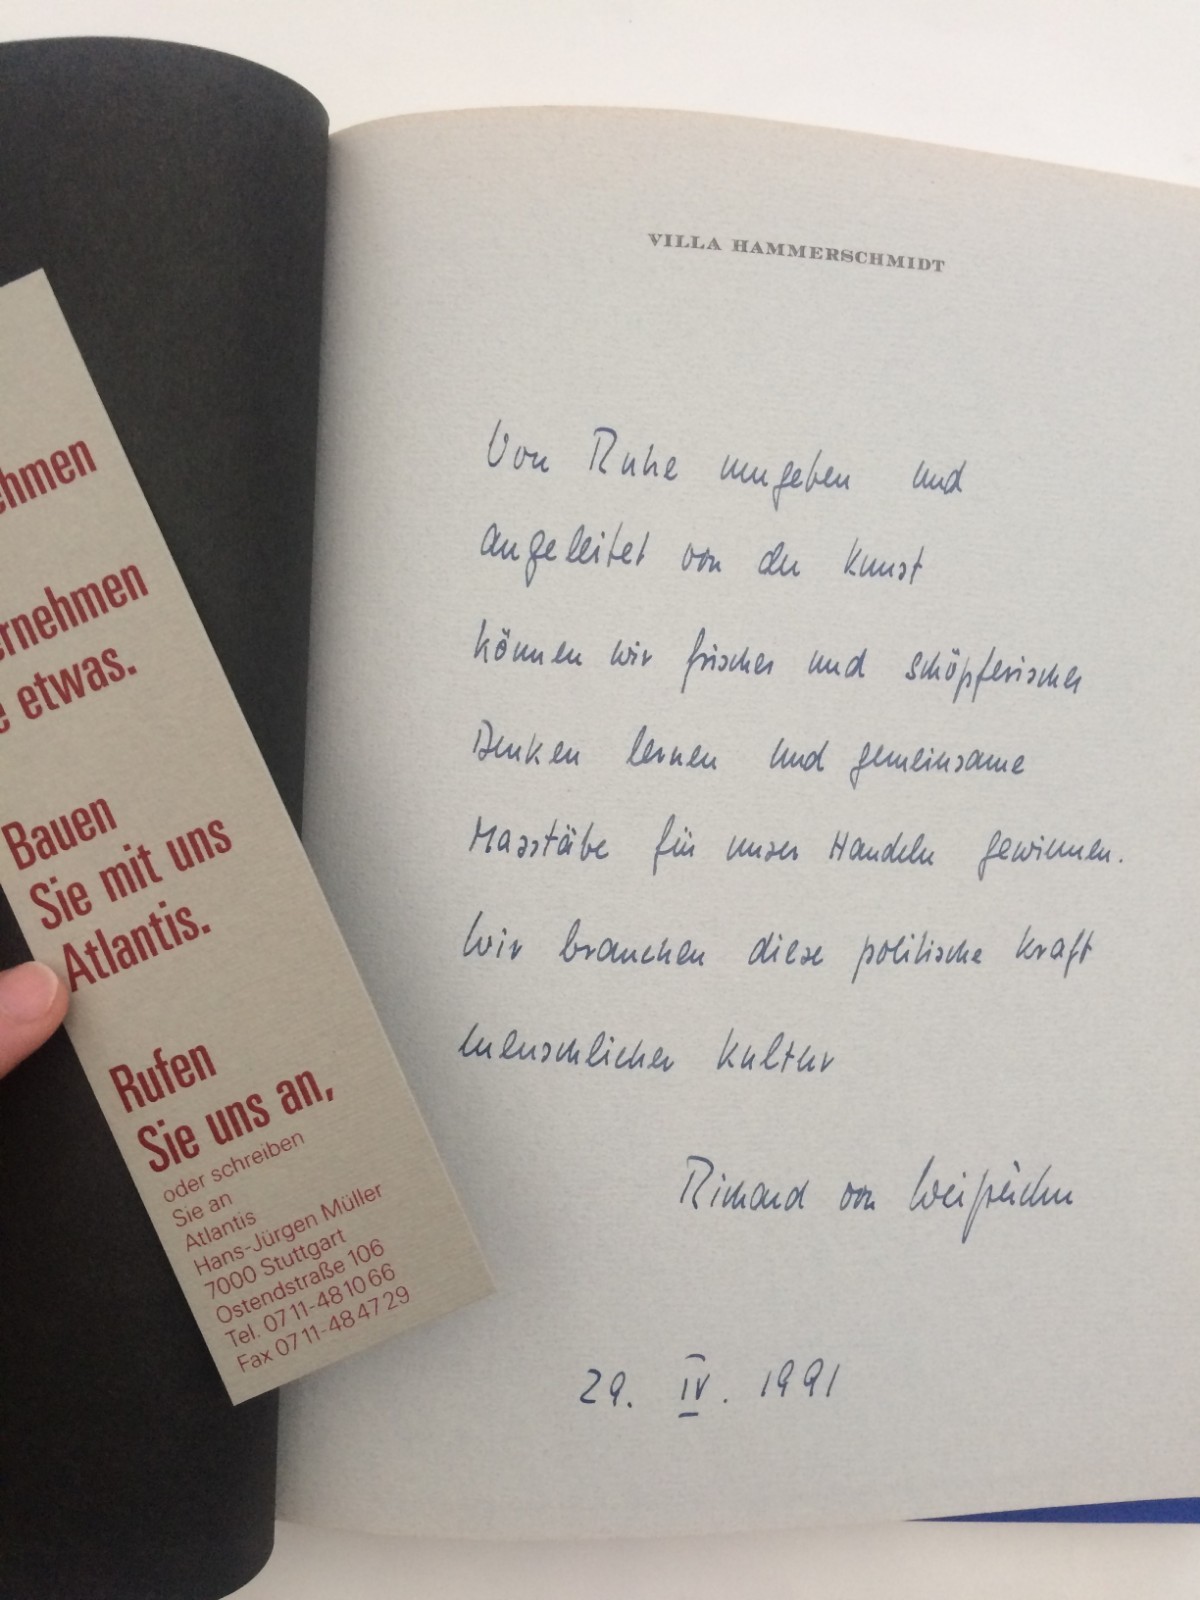 ehmen
ernehmen
e etwas.
Bauen
Sie mit uns
Atlantis.
Rufen
Sie uns an,
oder schreiben
Sie an
Atlantis
Hans-Jürgen Müller
7000 Stuttgart
Ostendstraße 106
Tel. 0711-481066
Fax 0711-484729
VILLA HAMMERSCHMIDT
Von Ruhe umgeben und
angeleitet von der Kunst
können wir frisches und schöpferisches
Denken lernen und gemeinsame
Masstäbe für unser Handeln gewinnen.
Wir brauchen diese politische Kraft
menschlicher Kultur
Richard von Weizsäcker
29. IV. 1991